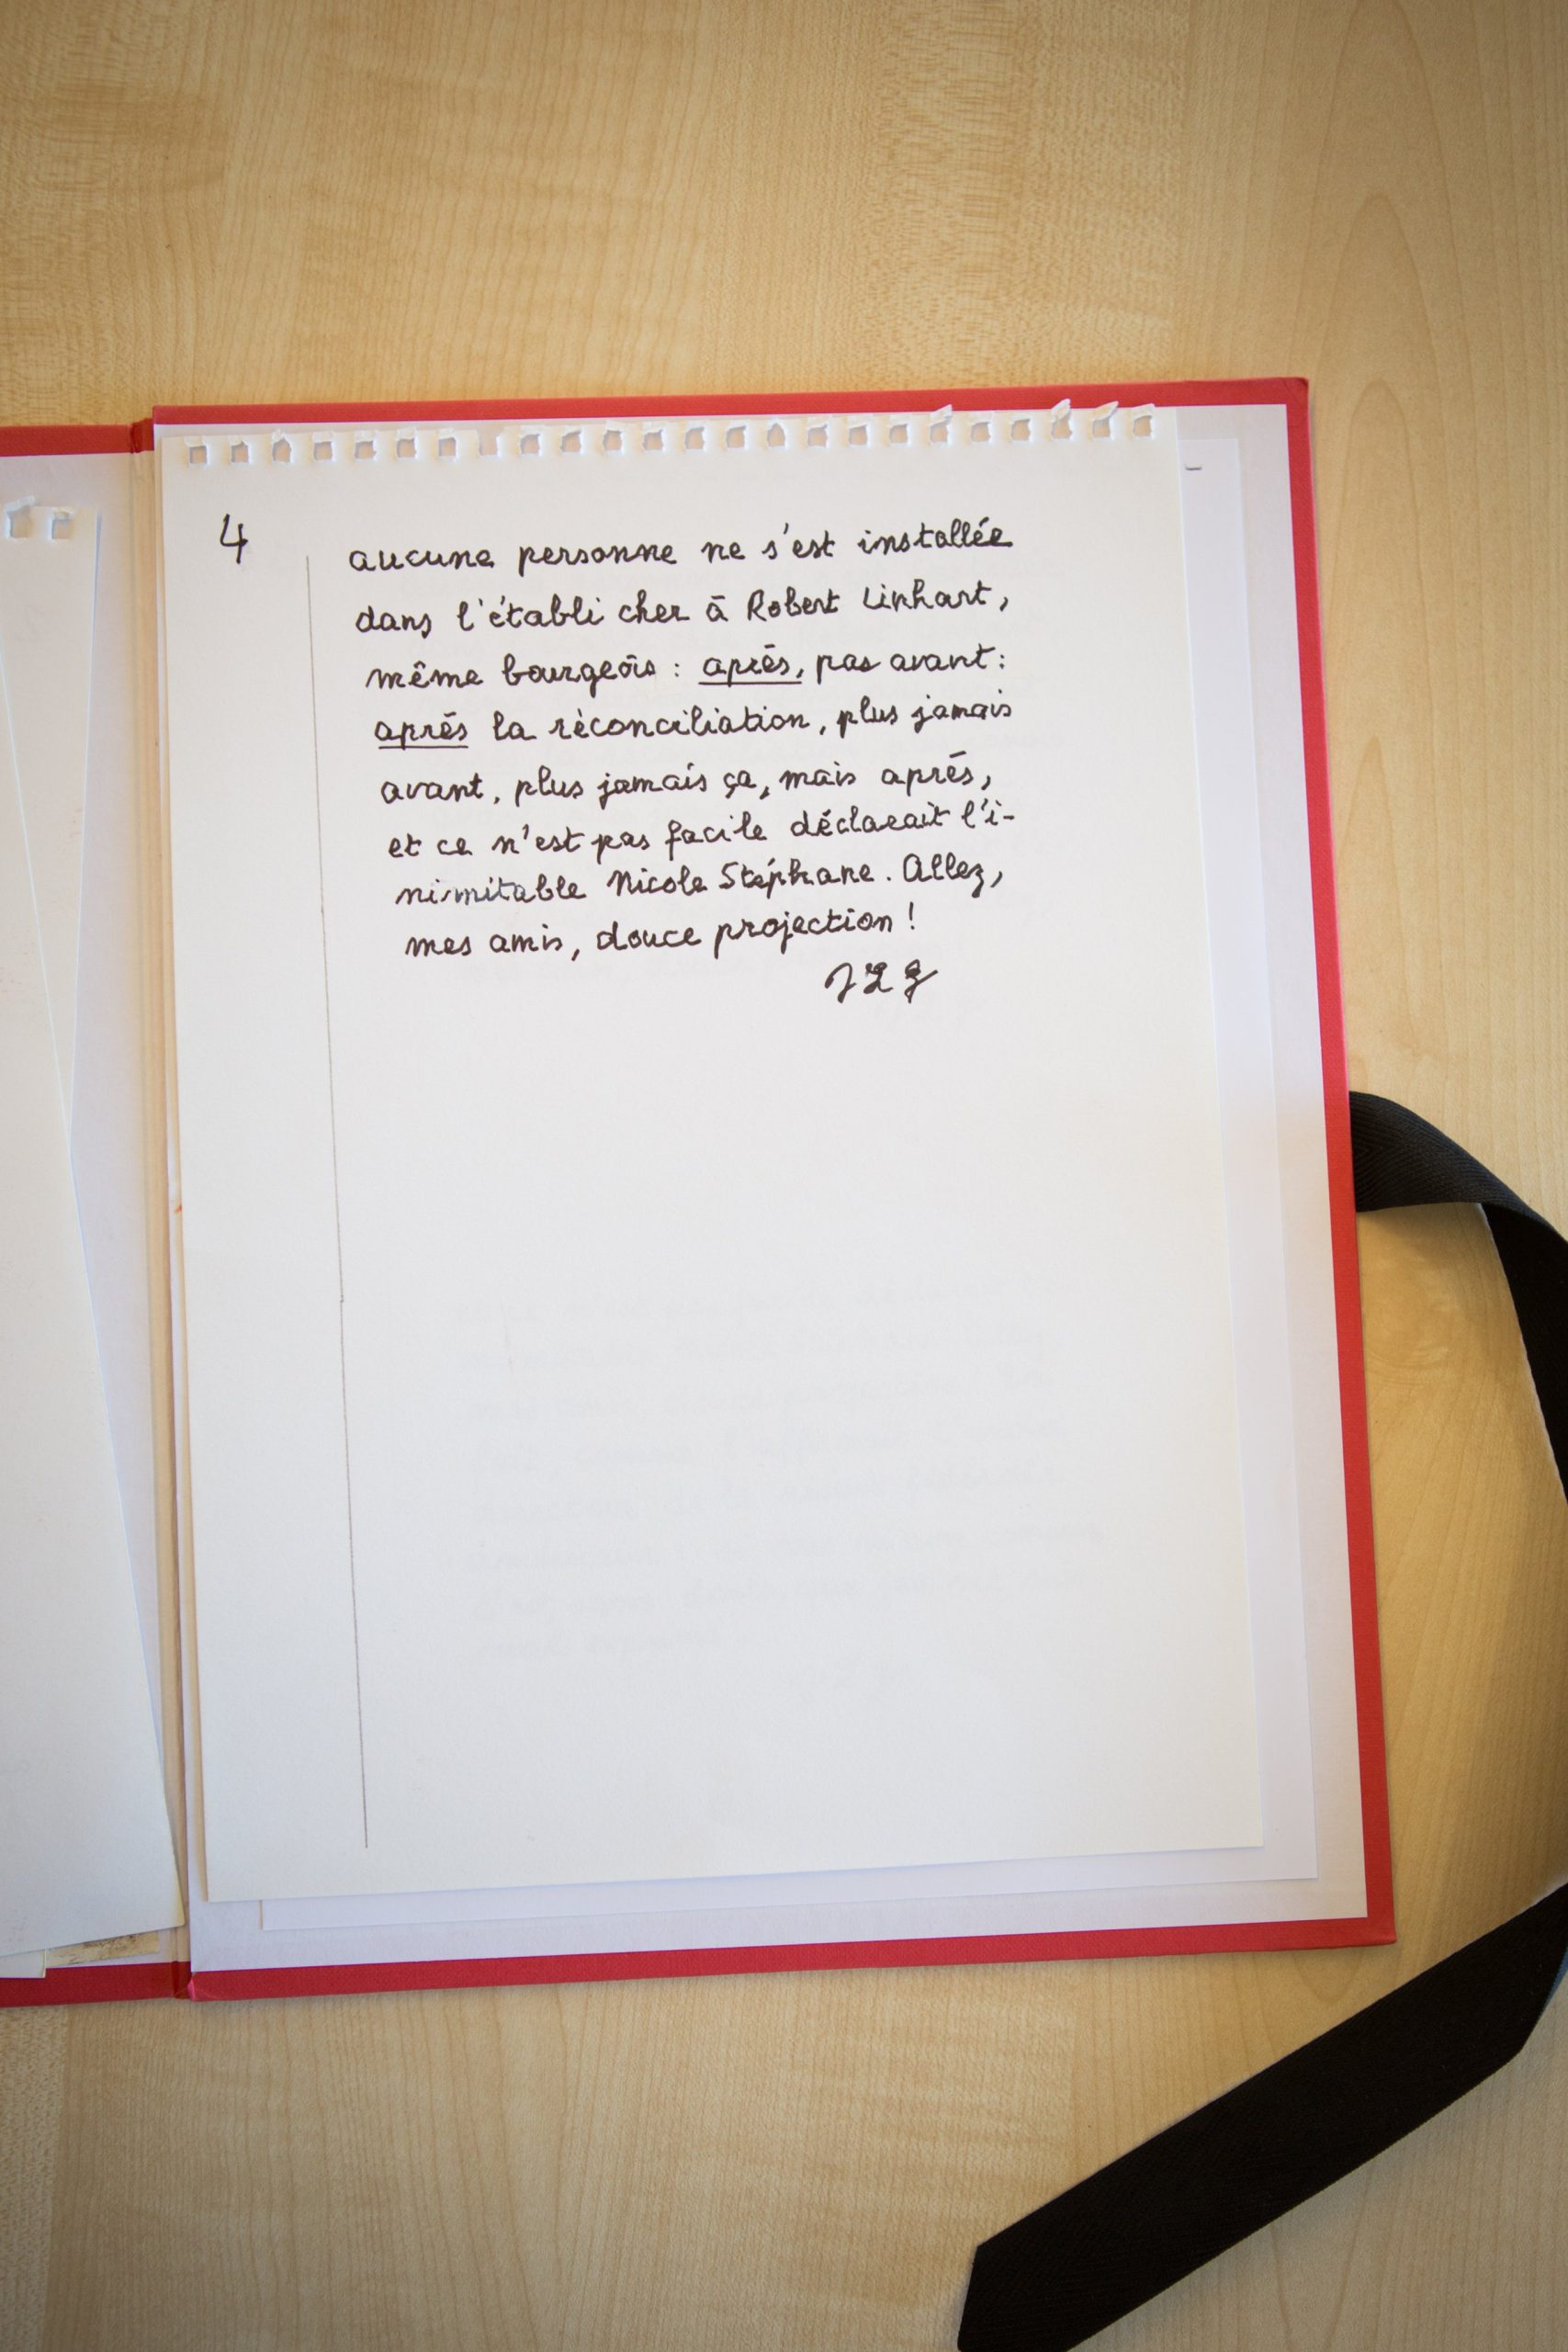 4
aucune personne ne s'est installée
dans l'établi cher à Robert Linhart,
même bourgeois : après, pas avant :
après la réconciliation, plus jamais
avant, plus jamais ça, mais après,
et ce n'est pas facile déclarait l'i-
nimitable Nicole Stéphane. Allez,
mes amis, douce projection !
JLG